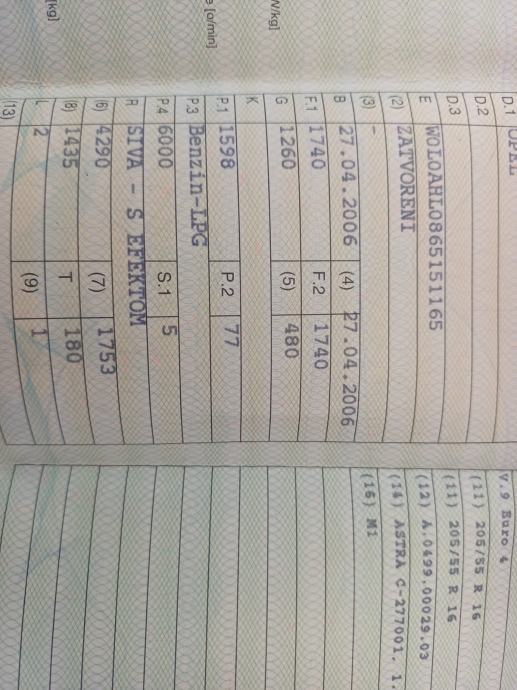 D.1 OPEL
D.2
D.3
E WOLOAHL0865151165
(2) ZATVORENI
(3) -
B 27.04.2006 (4) 27.04.2006
F.1 1740 F.2 1740
G 1260 (5) 480
K
P.1 1598 P.2 77
P.3 Benzin-LPG
P.4 6000 S.1 5
R SIVA - S EFEKTOM
(6) 4290 (7) 1753
(8) 1435 T 180
L 2 (9) 1
(13)
V.9 Euro 4
(11) 205/55 R 16
(11) 205/55 R 16
(12) A.0499.00029.03
(14) ASTRA C-277001. 1.
(16) M1
/kg]
[o/min]
kg]